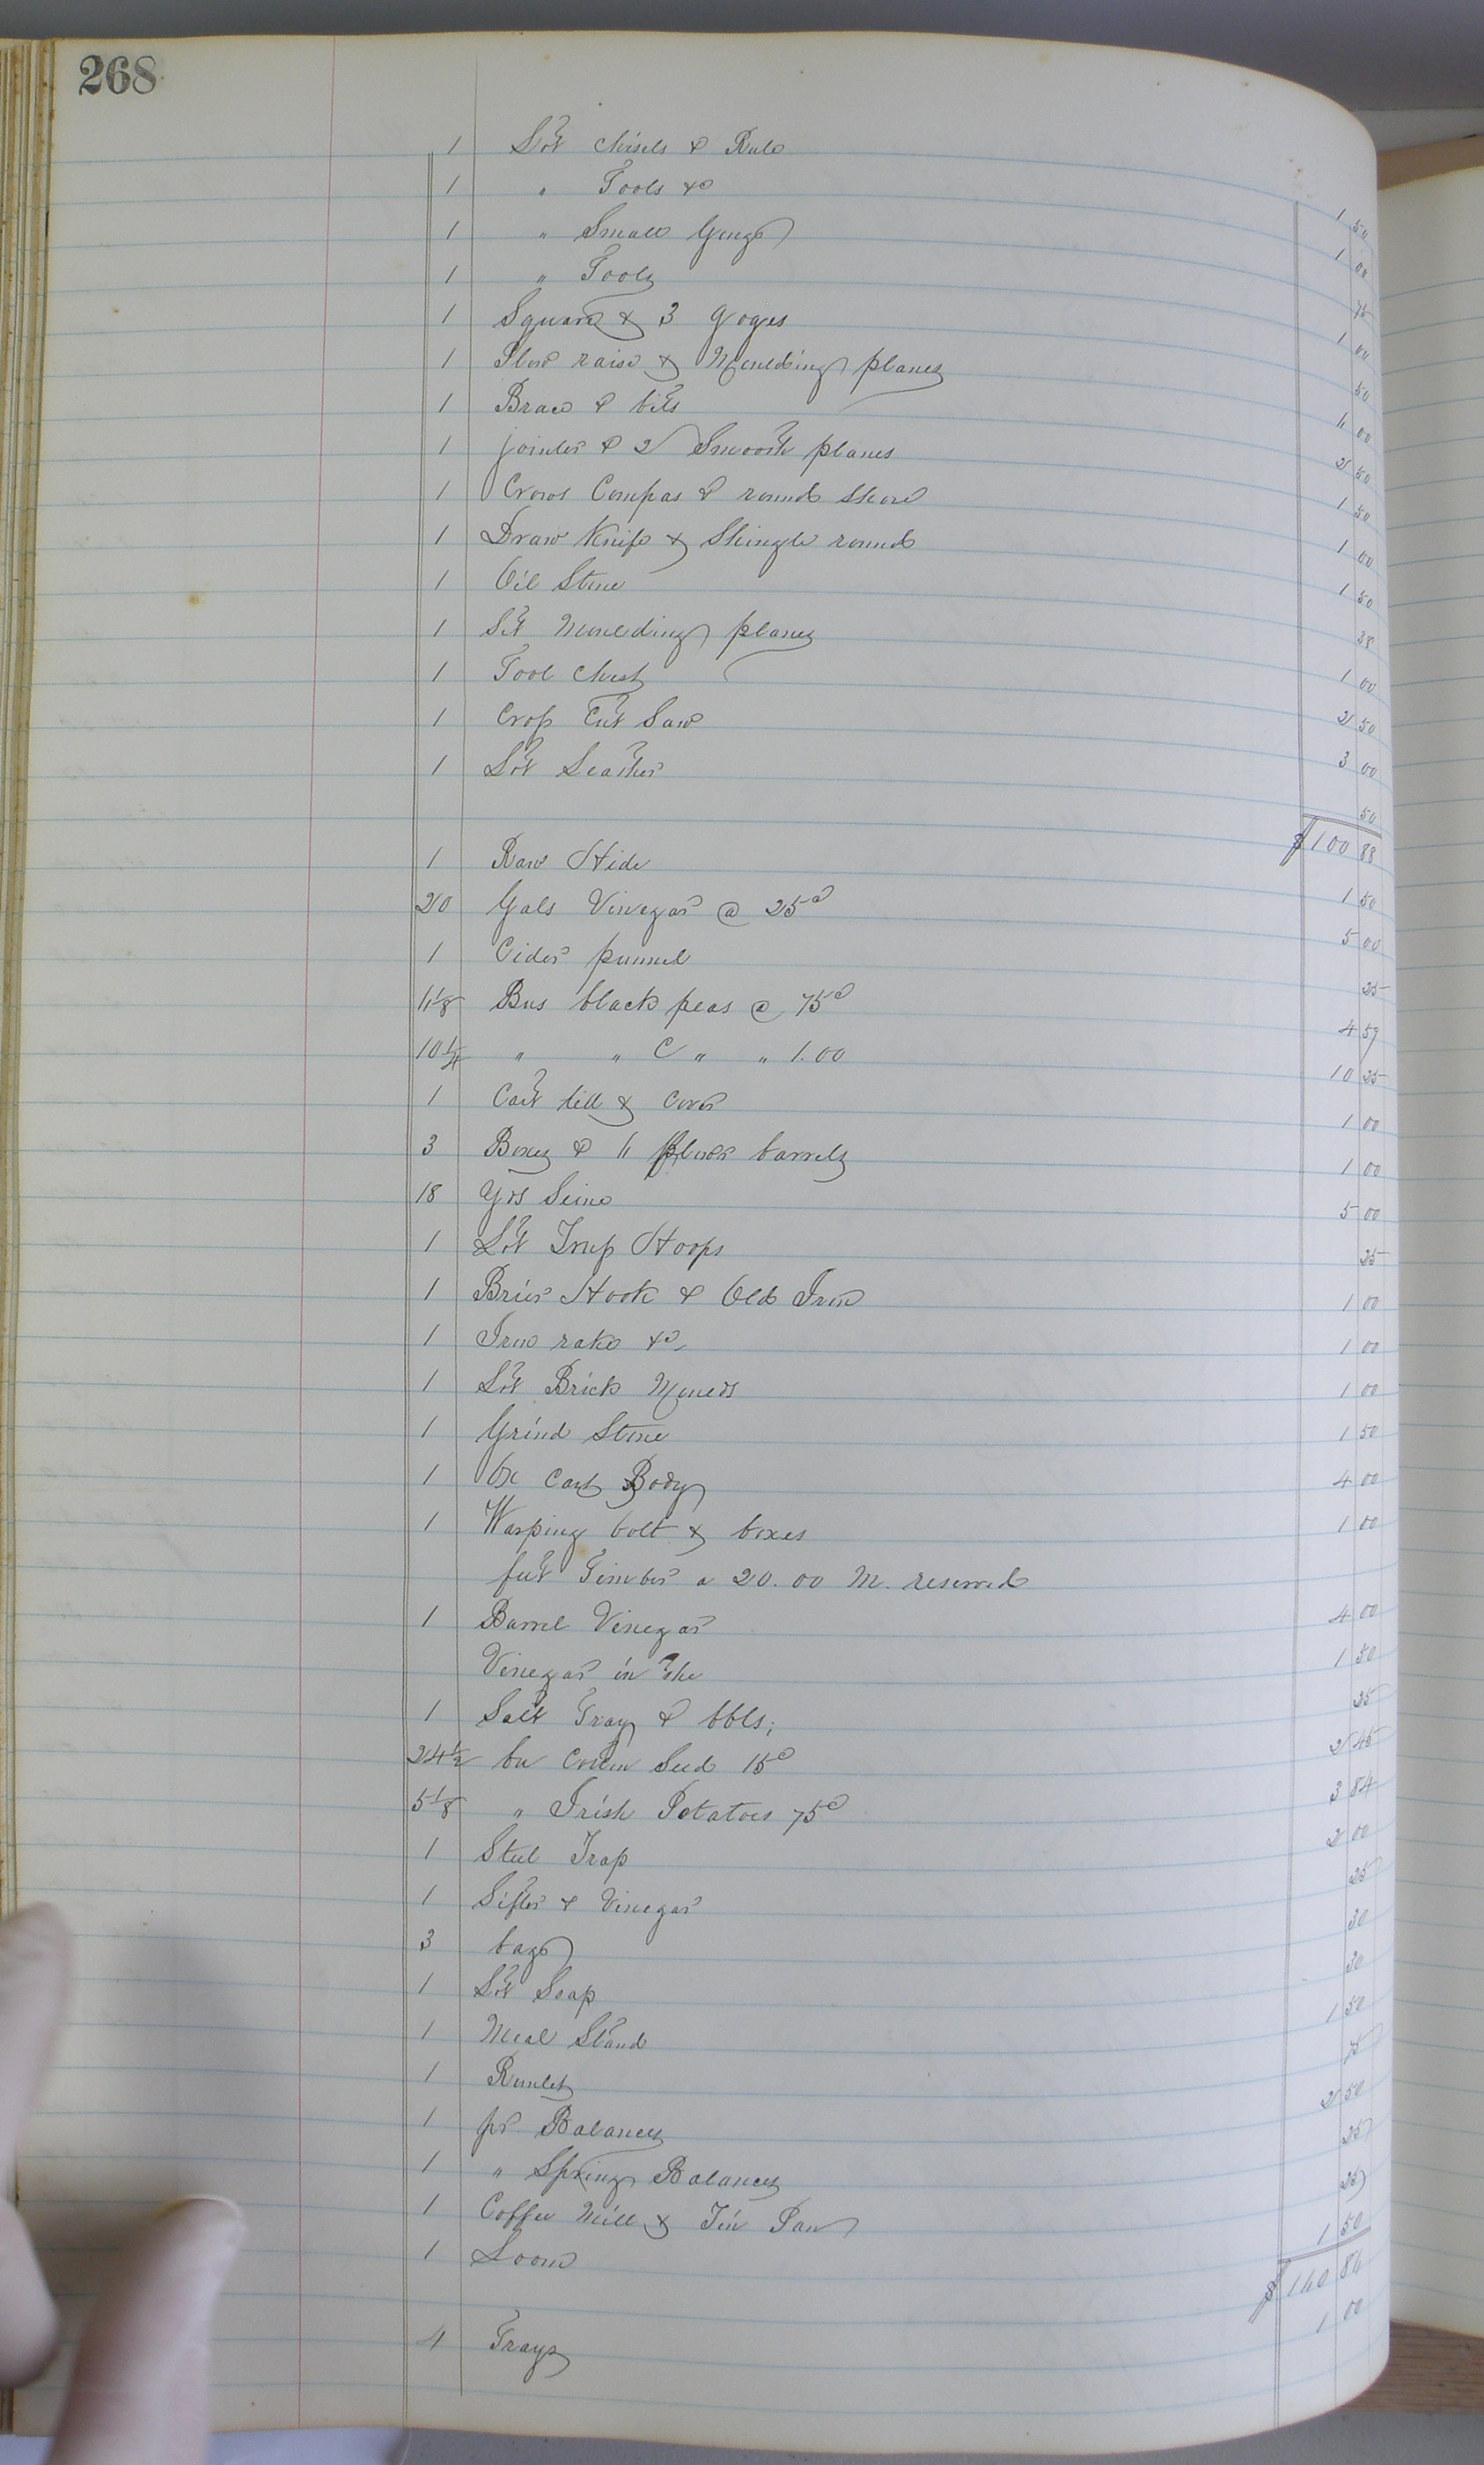 268
1 Lot chisels & Rule 1 50
1 " Tools &c 1 00
1 " Small Gougs 75
1 " Tools 1 00
1 Square & 3 goges 50
1 Plow raise & Moulding planes 6 00
1 Brace & bits 2 50
1 jointer & 2 Smooth planes 1 50
1 Crows Compas & round Shave 1 00
1 Draw Knife & Shingle round 1 50
1 Oil Stone 38
1 Set Moulding planes 1 00
1 Tool Chest 2 50
1 Cross Cut Saw 3 00
1 Lot Leather 50
$100 88
1 Raw Hide 1 50
20 Gals Vinegar @ 25c 5 00
1 Cider funnel 25
6 1/8 Bus black peas @ 75c 4 59
10 1/4 " " C " " 1.00 10 25
1 Cart bill & Cover 1 00
3 Boxes & 6 flour barrels 1 00
18 Yds Seine 5 00
1 Lot Trup Hoops 25
1 Brier Hook & Old Iron 1 00
1 Iron rake &c 1 00
1 Lot Brick Moulds 1 00
1 Grind Stone 1 50
1 Ox Cart Body 4 00
1 Warping bolt & boxes 1 00
feet Timber a 20.00 M. reserved
1 Barrel Vinegar 4 00
Vinegar in the 1 50
1 Salt Tray & bbls; 25
24 1/2 bu Cotton Seed 15c 2 45
5 1/8 " Irish Potatoes 75c 3 84
1 Steel Trap 2 00
1 Sifter & Vinegar 25
3 bags 30
1 Lot Soap 30
1 Meal Stand 1 50
1 Runlet 75
1 pr Balances 2 50
1 " Spring Balances 25
1 Coffee Mill & Tin Pan 25
1 Loom 1 50
$160 86
4 Trays 1 00